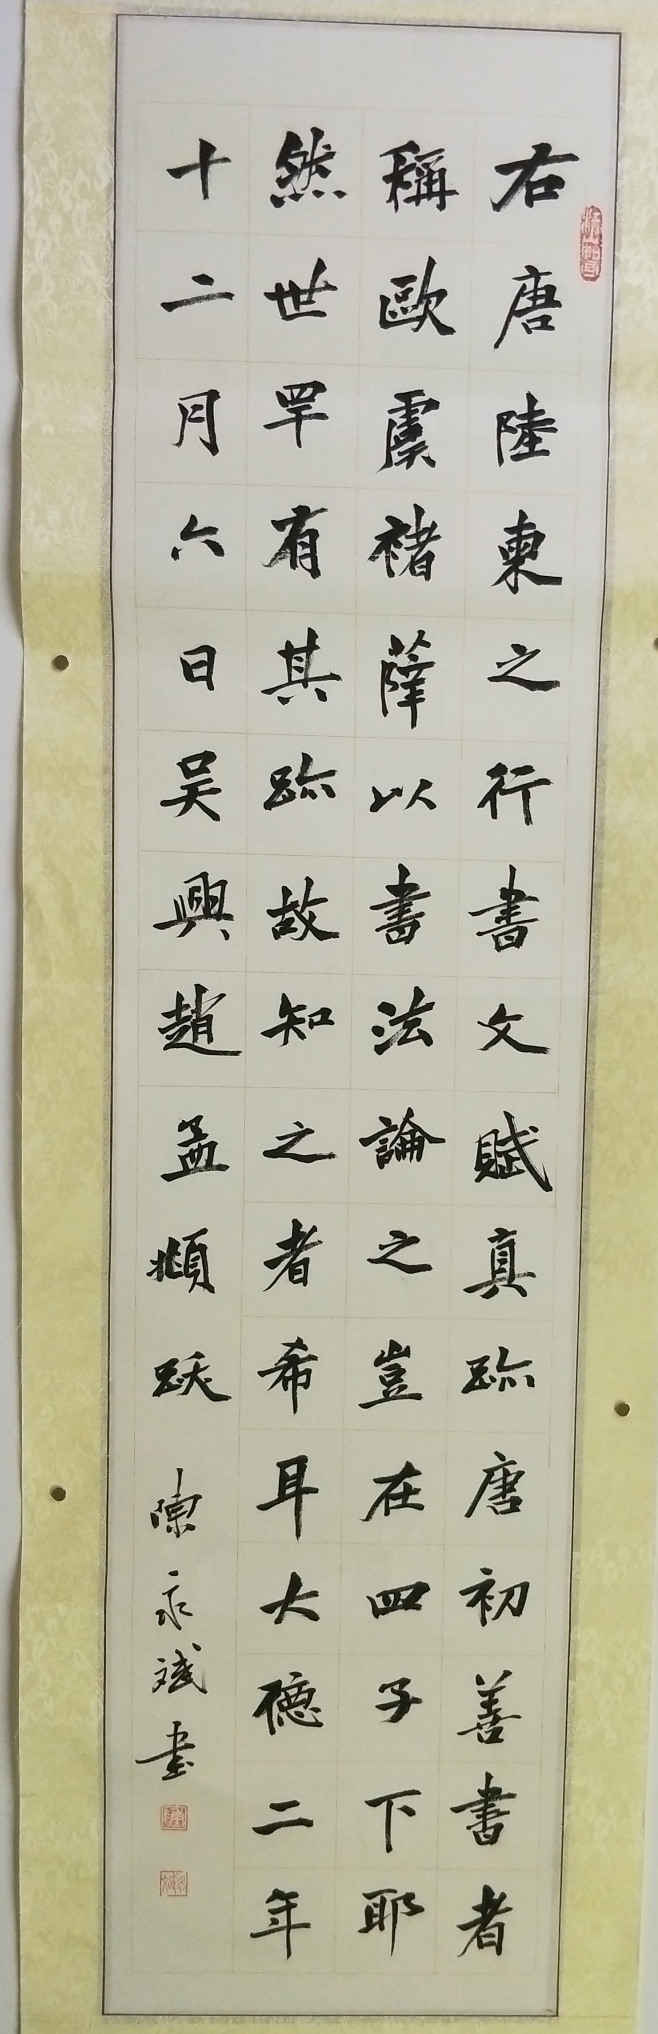 右唐陸柬之行書文賦真跡唐初善書者
稱歐虞褚薛以書法論之豈在四子下耶
然世罕有其跡故知之者希耳大德二年
十二月六日吴興趙孟頫跋
陳永斌書